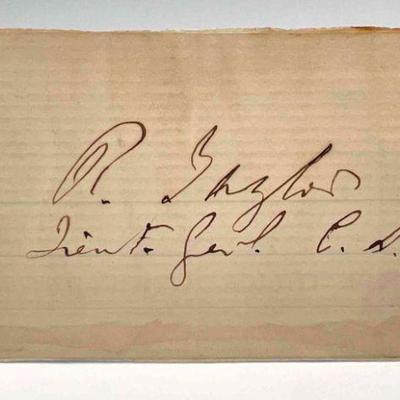 R. Taylor
Lieut. Genl. C. S.